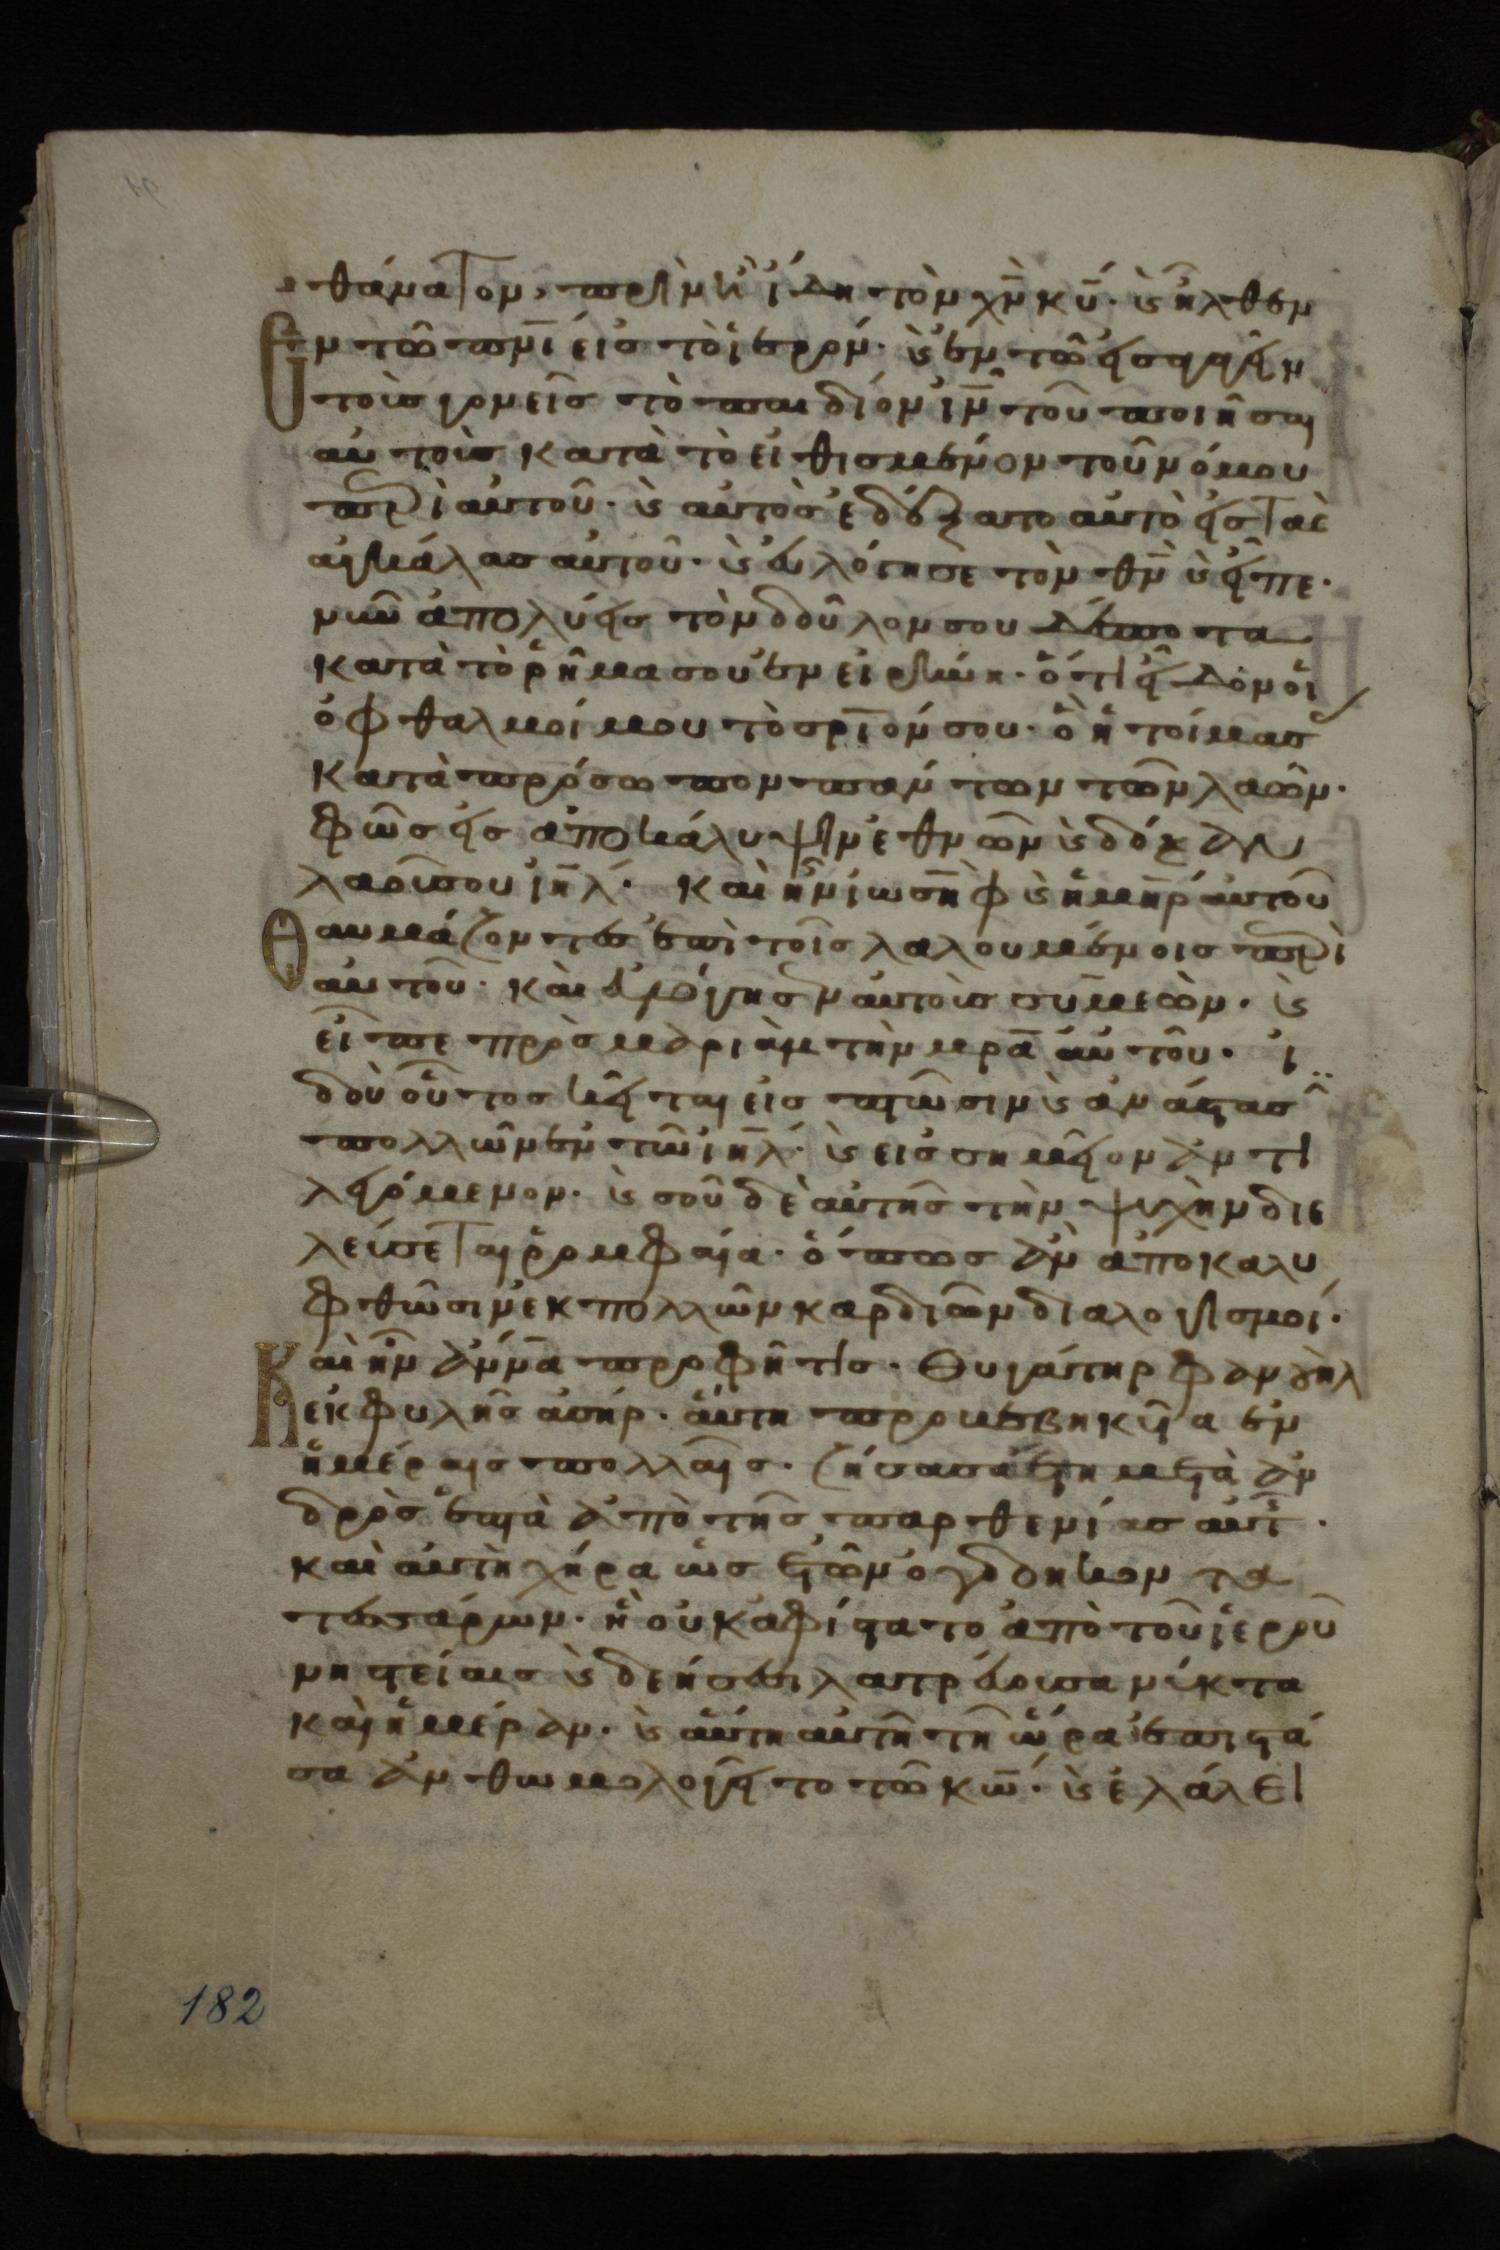 θάνατον, πρὶν ἢ ἴδη τὸν χ̅ν̅ κ̅υ̅. κ̀ ἦλθεν
ἐν τῶ π̅ν̅ι εἰς τὸ ἱερόν. κ̀ ἐν τῶ εἰσαγαγεῖν
τοὺς γονεῖς τὸ παιδίον ι̅ν̅ τοῦ ποιῆσαι
αὐτοὺς κατὰ τὸ εἰθισμένον τοῦ νόμου
περὶ αὐτοῦ. κ̀ αὐτὸς ἐδέξατο αὐτὸ εἰς τὰς
ἀγκάλας αὐτοῦ. κ̀ εὐλόγησε τὸν θ̅ν̅ κ̀ εἶπε.
νῦν ἀπολύεις τὸν δοῦλον σου δέσποτα
κατὰ τὸ ῥῆμα σου ἐν εἰρήνη. ὅτι εἶδον οἱ
ὀφθαλμοί μου τὸ σ̅ρ̅ιόν σου. ὃ ἡτοίμασ
κατὰ πρόσωπον πάντων τῶν λαῶν.
φῶς εἰς ἀποκάλυψιν ἐθνῶν κ̀ δόξαν
λαοῦ σου ι̅η̅λ̅. καὶ ἦν ἰωσὴφ κ̀ ἡ μ̅η̅ρ̅ αὐτοῦ
θαυμάζοντες ἐπὶ τοῖς λαλουμένοις περὶ
αὐτοῦ. καὶ εὐλόγησεν αὐτοὺς συμεὼν. κ̀
εἶπε πρὸς μαριὰμ τὴν μ̅ρ̅α̅ αὐτοῦ. ἰ
δοὺ οὗτος κεῖται εἰς πτῶσιν κ̀ ἀνάστασ
πολλῶν ἐν τῶ ι̅η̅λ̅. κ̀ εἰς σημεῖον ἀντι
λεγόμενον. κ̀ σοῦ δὲ αὐτῆς τὴν ψυχὴν διε
λεύσεται ῥομφαία. ὅπως ἂν ἀποκαλυ
φθῶσιν ἐκ πολλῶν καρδιῶν διαλογισμοί.
Καὶ ἦν ἄννα προφῆτις. θυγάτηρ φανουὴλ
ἐκ φυλῆς ἀσήρ. αὕτη προβεβηκυῖα ἐν
ἡμέραις πολλαῖς. ζήσασα ἔτη μετὰ ἀν
δρὸς ἑπτὰ ἀπὸ τῆς παρθενίας αὐτ.
καὶ αὐτὴ χήρα ὡς ἐτῶν ὀγδοηκοντα
τεσσάρων. ἣ οὐκ ἀφίστατο ἀπὸ τοῦ ἱεροῦ
νηστείαις κ̀ δεήσεσι λατρεύουσα νύκτα
καὶ ἡμέραν. κ̀ αὕτη αὐτῆ τῆ ὥρα ἐπιστᾶ
σα ἀνθωμολογεῖτο τῶ κ̅ω̅. κ̀ ἐλάλει
182